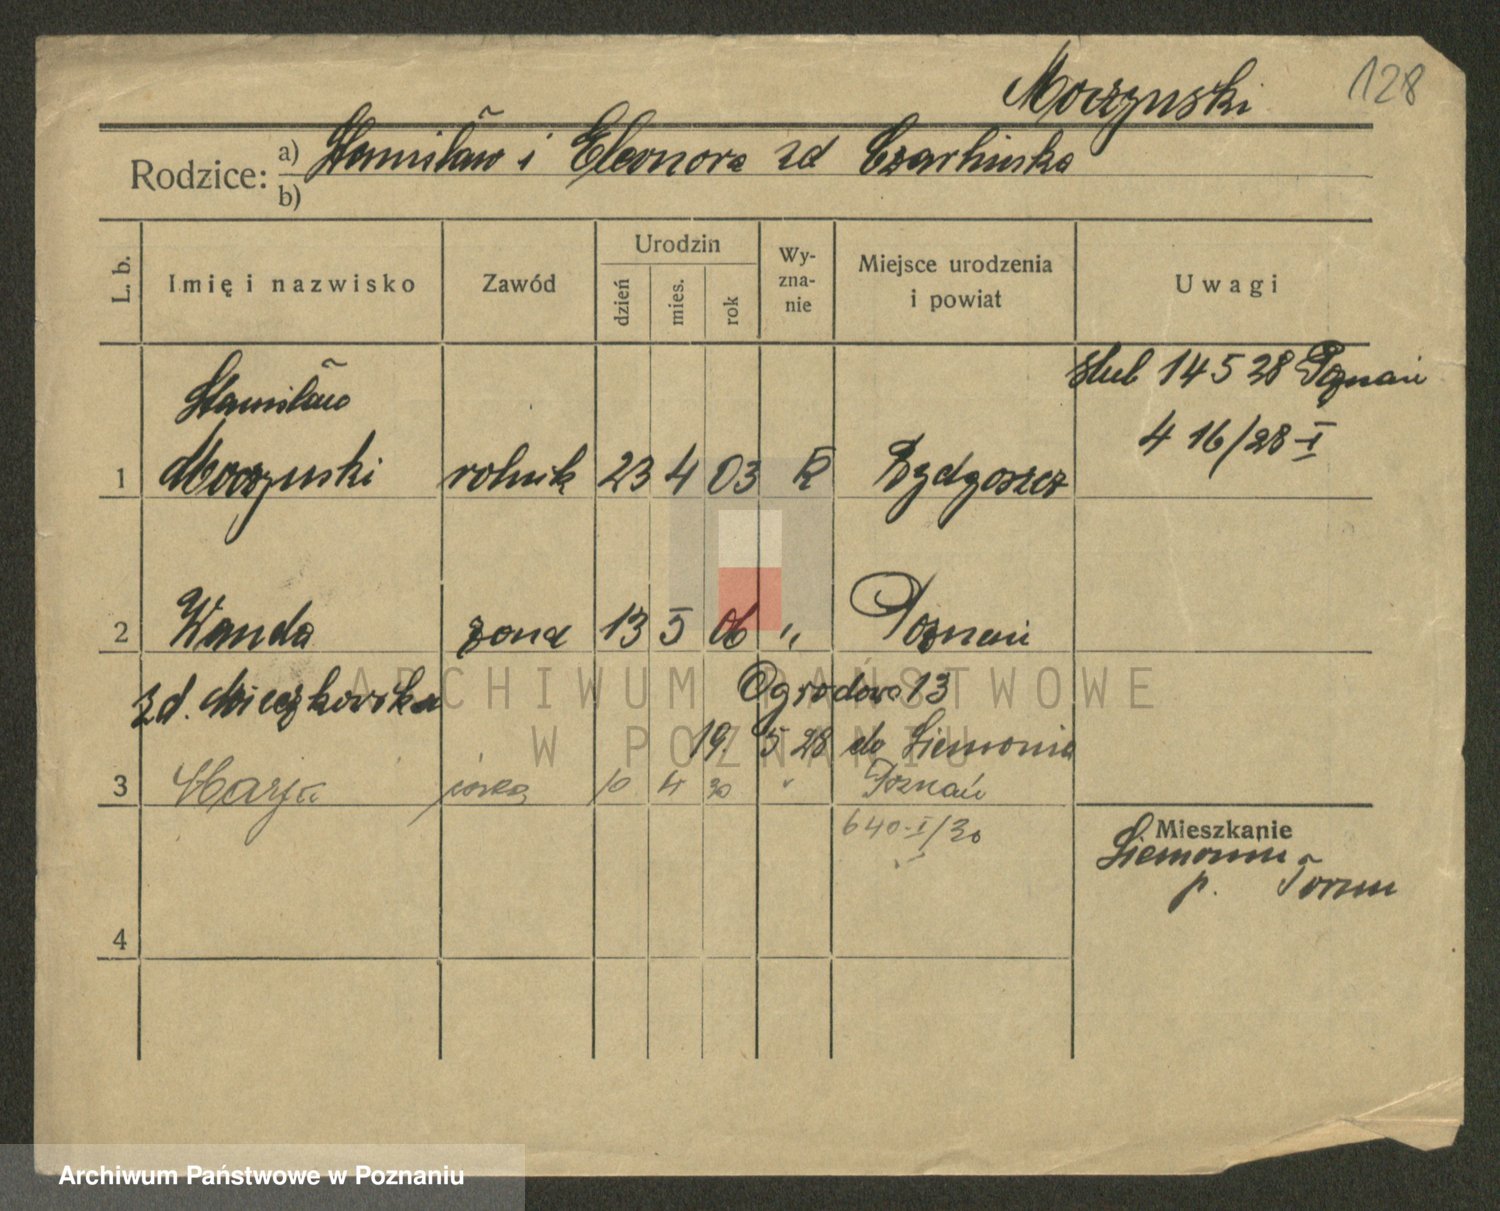 Moczynski
128
Rodzice: a) Stanisław i Eleonora zd Czarlinska
b)
L. b.
Imię i nazwisko
Zawód
Urodzin
dzień
mies.
rok
Wy-
zna-
nie
Miejsce urodzenia
i powiat
Uwagi
ślub 14 5 28 Poznań
4 16/28 I
Stanisław
1 Moczynski rolnik 23 4 03 K Bydgoszcz
2 Wanda żona 13 5 06 „ Poznań
zd. Mieczkowska Ogrodowa 13
19. 5 28 do Siemonia
3 Marja córka 10 4 30 " Poznań
640-I/30
Mieszkanie
Siemoniu
p. Toruń
4
ARCHIWUM PAŃSTWOWE
W POZNANIU
Archiwum Państwowe w Poznaniu